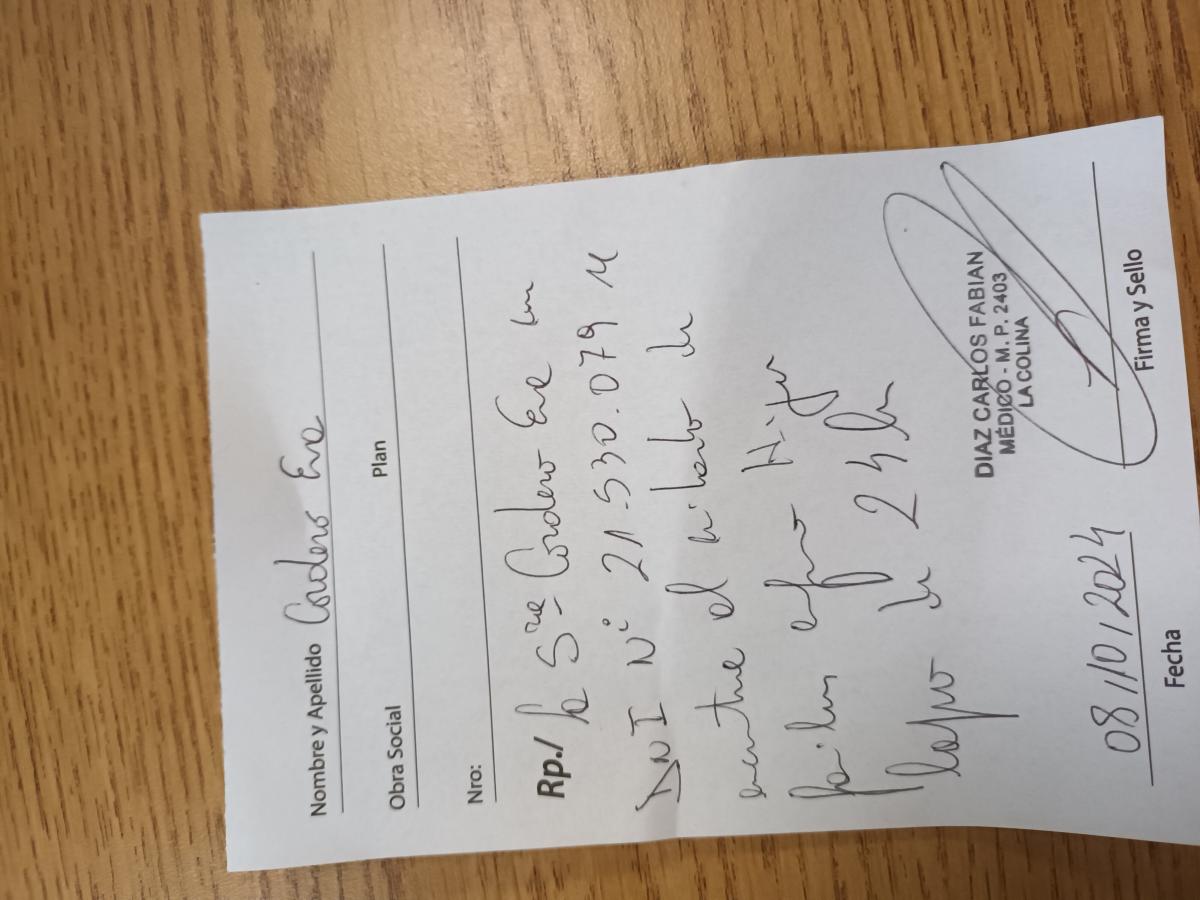 Nombre y Apellido Cordero Eva
Obra Social Plan
Nro:
Rp./ La Sra Cordero Eva con
DNI N° 21.530.079 se
encuentra al cuidado de
familiar enfermo Hijo por
lapso de 24 hs
DIAZ CARLOS FABIAN
MÉDICO - M. P. 2403
LA COLINA
08/10/2024
Fecha Firma y Sello